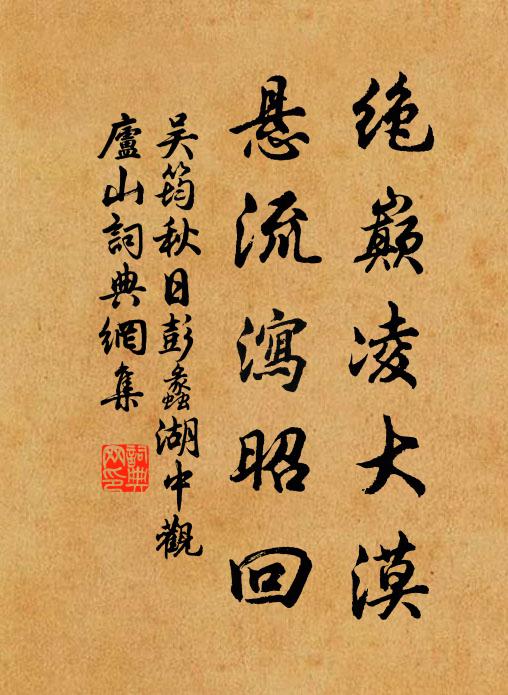 绝巅凌大漠
悬流泻昭回
吴筠秋日彭蠡湖中觀
廬山詞典網集
詞典
网印